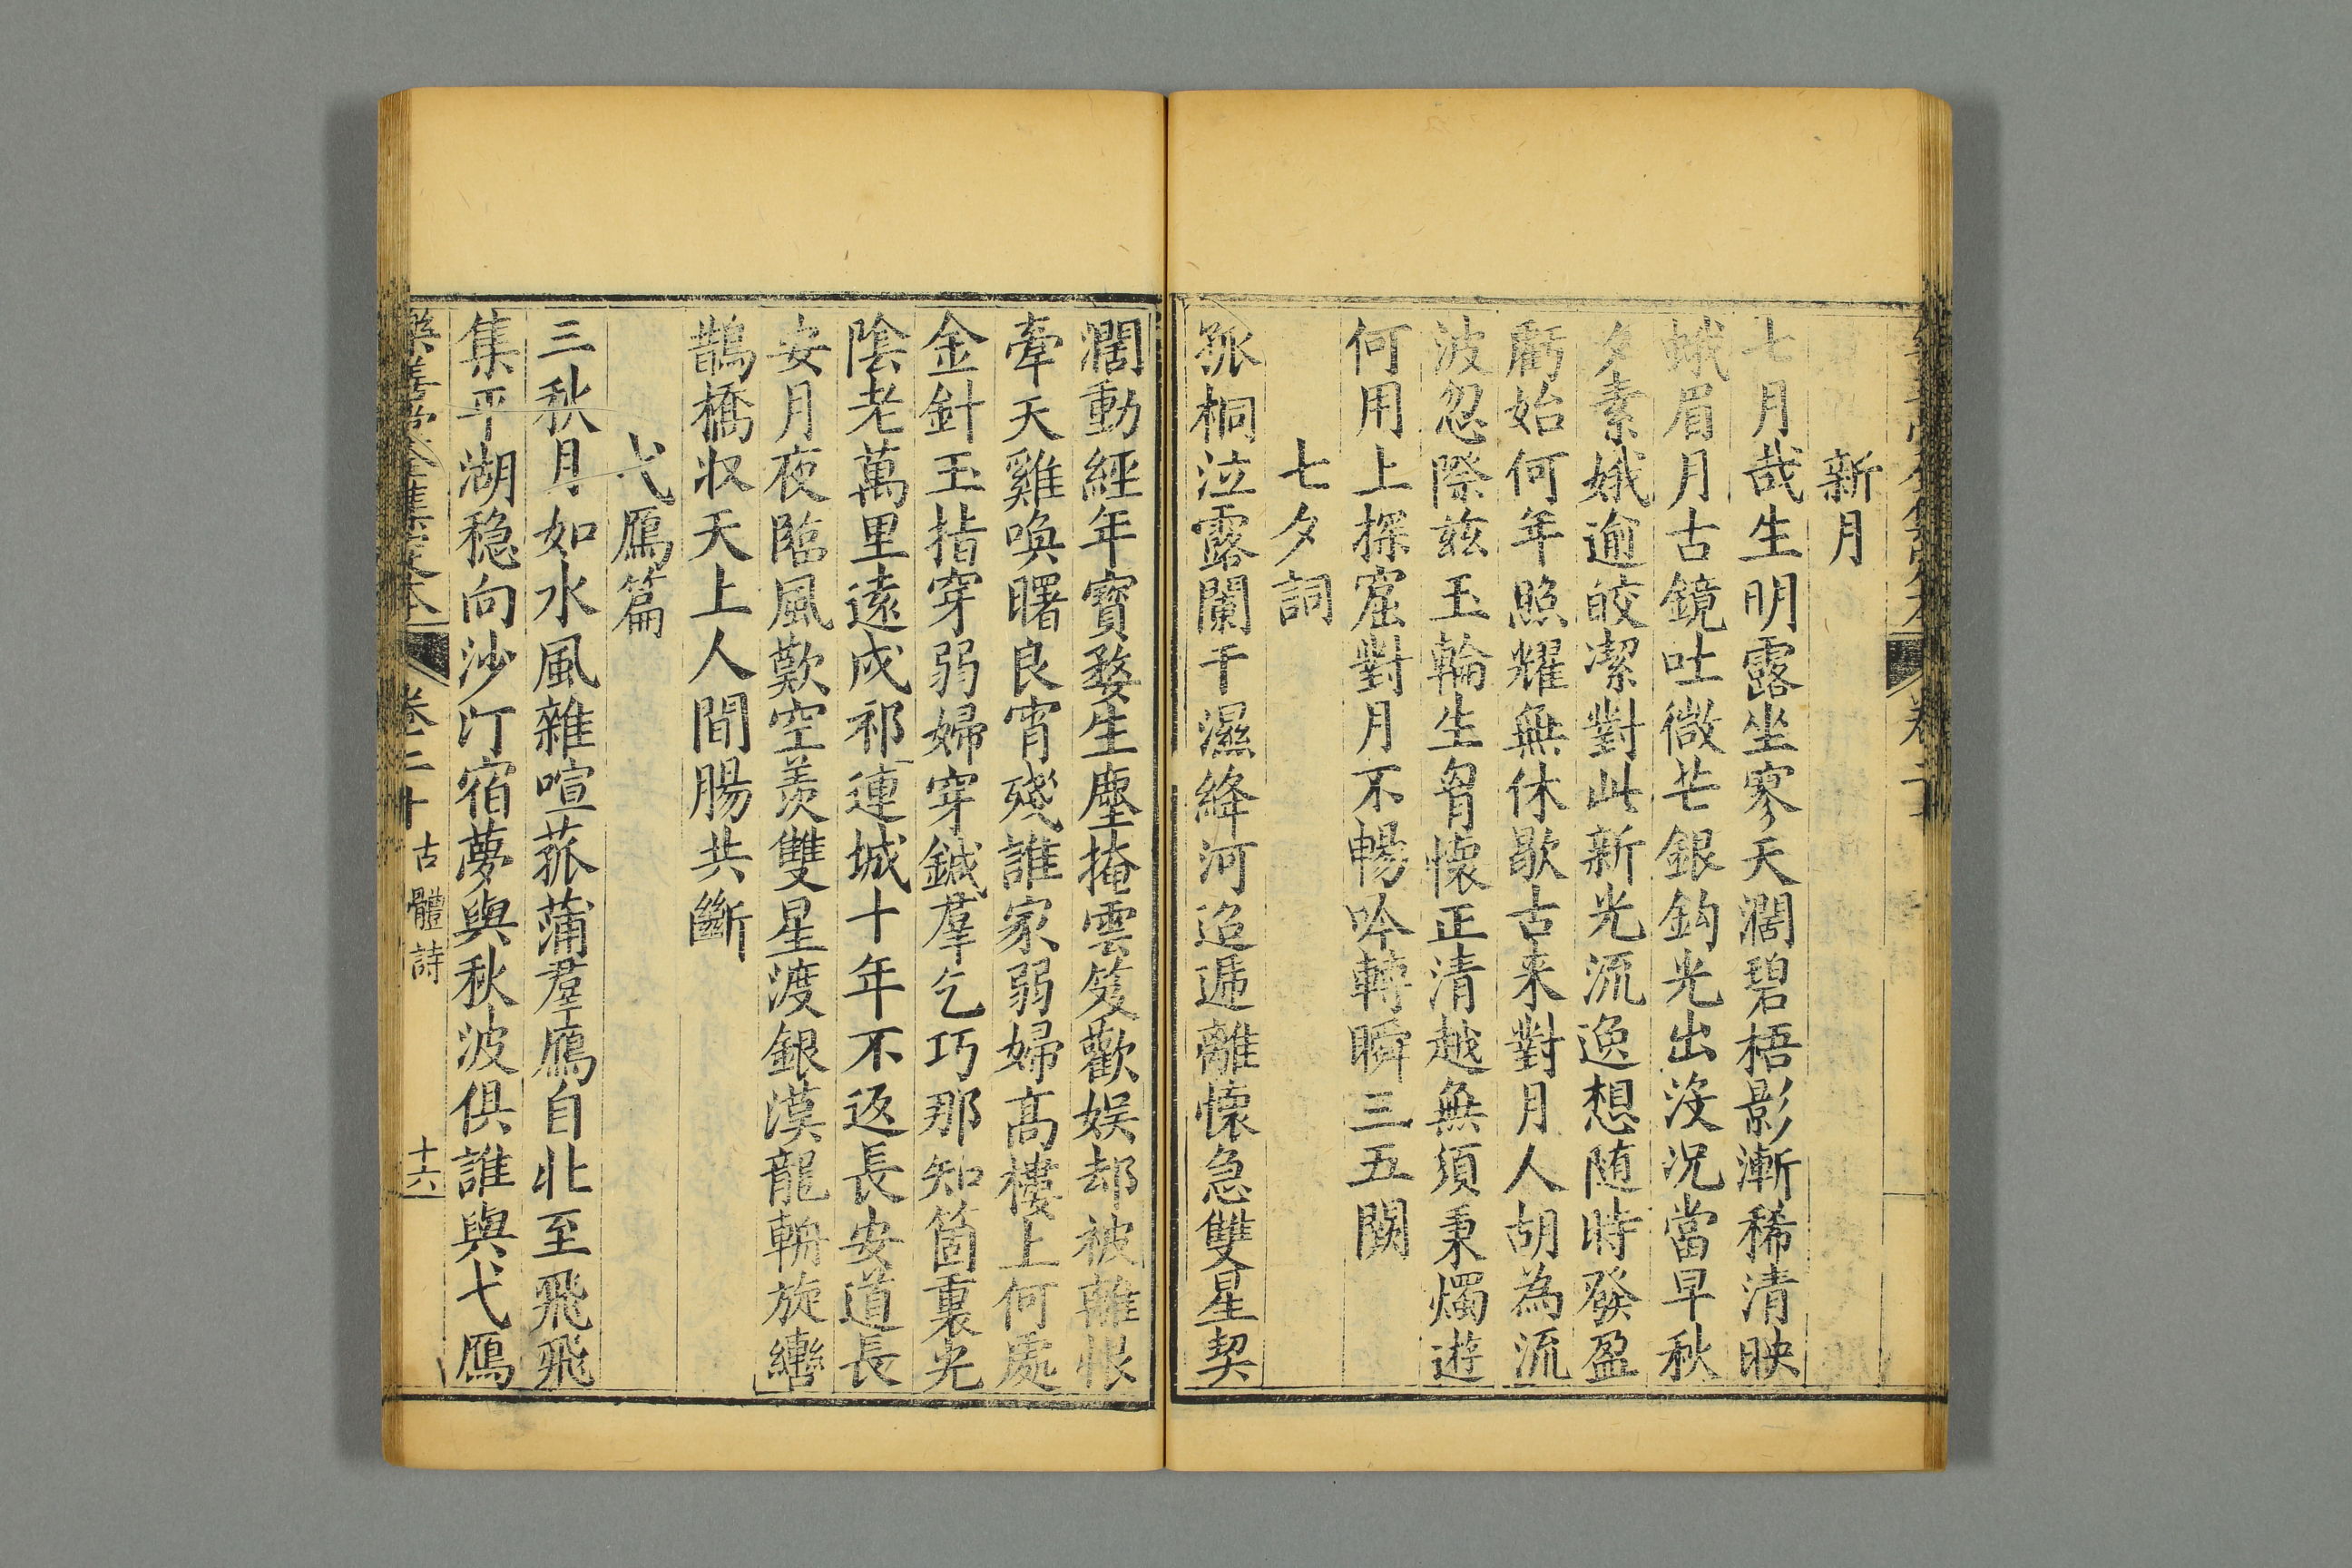 新月
七月哉生明露坐寥天濶碧梧影漸稀清映
蛾眉月古鏡吐微芒銀鈎光出沒況當早秋
夕素娥逾皎潔對此新光流逸想随時發盈
虧始何年照耀無休歇古来對月人胡為流
波忽際兹玉輪生胷懷正清越無須秉燭遊
何用上探窟對月不暢吟轉瞬三五闕
七夕詞
孤桐泣露闌干濕絳河迢遞離懷急雙星契
濶動經年寶婺生塵掩雲笈歡娱却被離恨
牽天雞喚曙良宵殘誰家弱婦髙樓上何處
金針玉指穿弱婦穿鍼羣乞巧那知箇裏光
陰老萬里遠戍祁連城十年不返長安道長
安月夜臨風歎空羨雙星渡銀漢龍輧旋轡
鵲橋収天上人間腸共斷
弋鴈篇
三秋月如水風雜喧菰蒲羣鴈自北至飛飛
集平湖稳向沙汀宿夢與秋波俱誰與弋鴈
樂善堂全集定本 卷二十 古體詩 十六